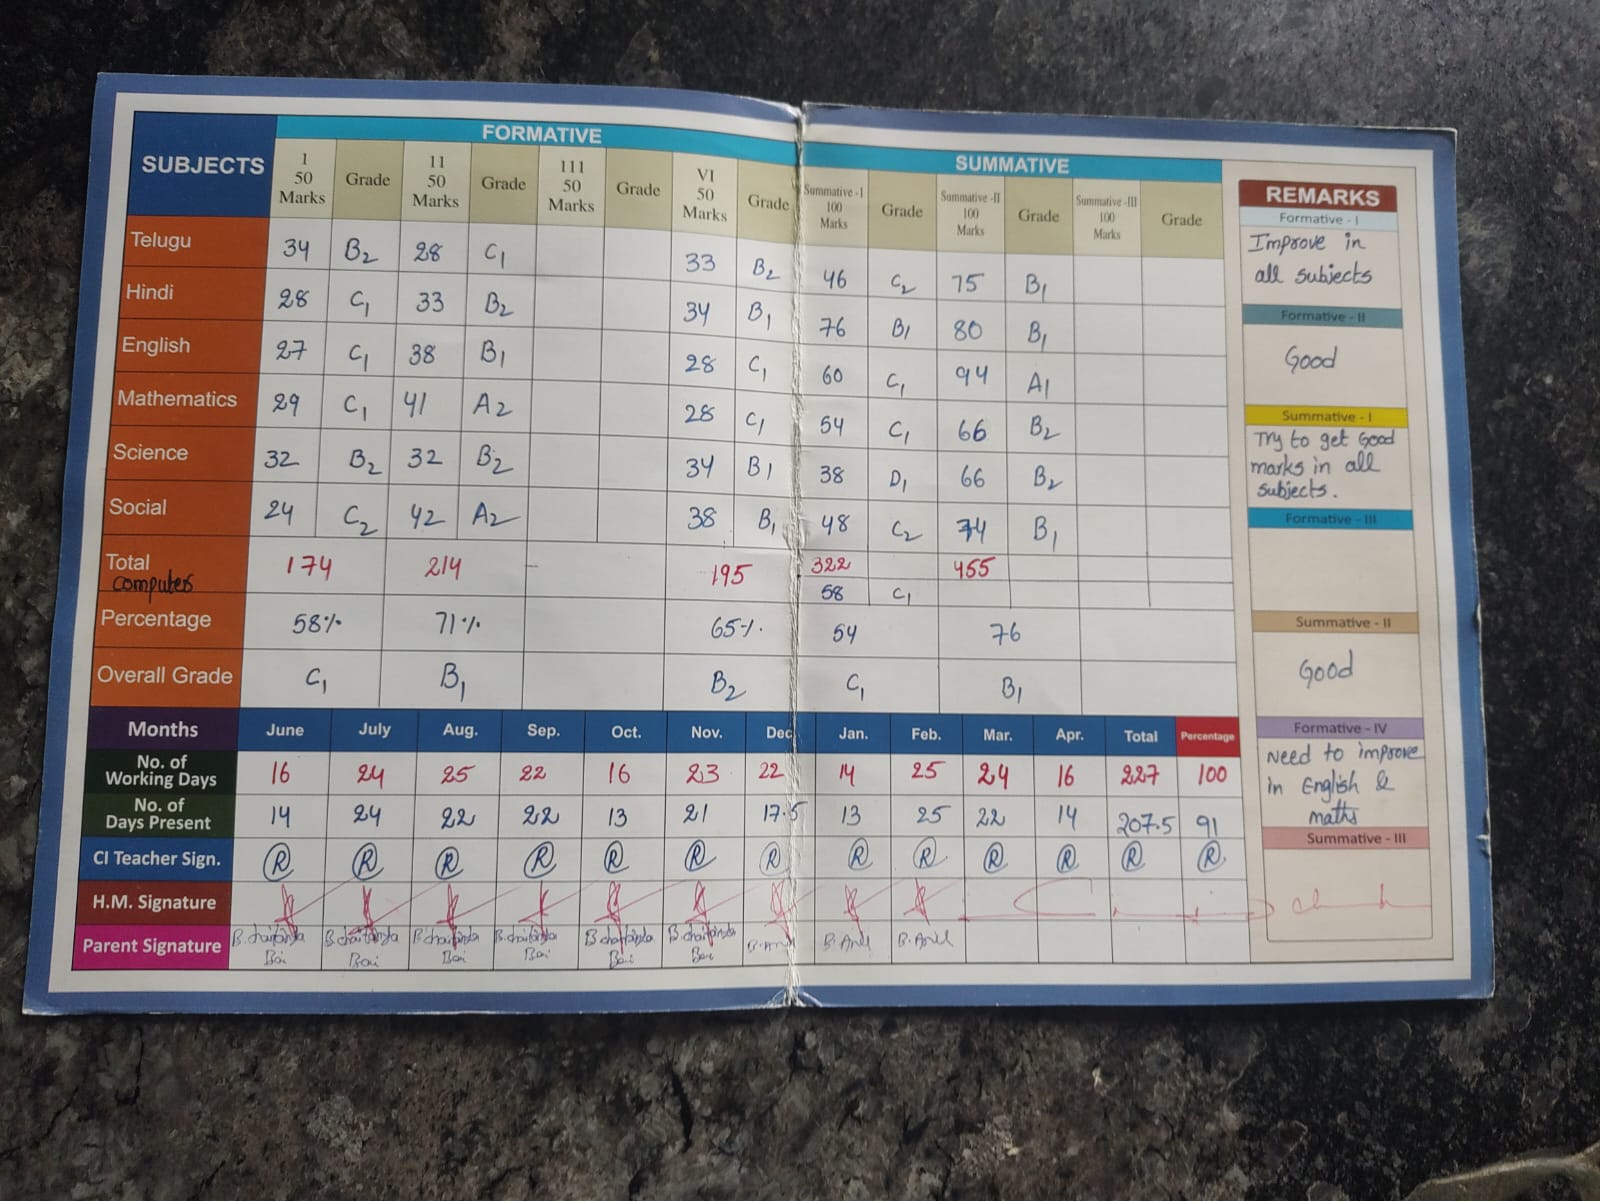 FORMATIVE
SUMMATIVE
SUBJECTS I 50 Marks Grade 11 50 Marks Grade 111 50 Marks Grade VI 50 Marks Grade Summative -I 100 Marks Grade Summative -II 100 Marks Grade Summative -III 100 Marks Grade
Telugu 34 B2 28 C1 33 B2 46 C2 75 B1
Hindi 28 C1 33 B2 34 B1 76 B1 80 B1
English 27 C1 38 B1 28 C1 60 C1 94 A1
Mathematics 29 C1 41 A2 28 C1 54 C1 66 B2
Science 32 B2 32 B2 34 B1 38 D1 66 B2
Social 24 C2 42 A2 38 B1 48 C2 74 B1
Total 174 214 195 322 455
computers 58 C1
Percentage 58% 71% 65% 54 76
Overall Grade C1 B1 B2 C1 B1
Months June July Aug. Sep. Oct. Nov. Dec Jan. Feb. Mar. Apr. Total Percentage
No. of Working Days 16 24 25 22 16 23 22 14 25 24 16 227 100
No. of Days Present 14 24 22 22 13 21 17.5 13 25 22 14 207.5 91
Cl Teacher Sign. R R R R R R R R R R R R R
H.M. Signature
Parent Signature
B. Anil B. Anil
REMARKS
Formative - I
Improve in
all subjects
Formative - II
Good
Summative - I
Try to get Good
marks in all
subjects.
Formative - III
Summative - II
Good
Formative - IV
Need to improve
in English &
maths
Summative - III